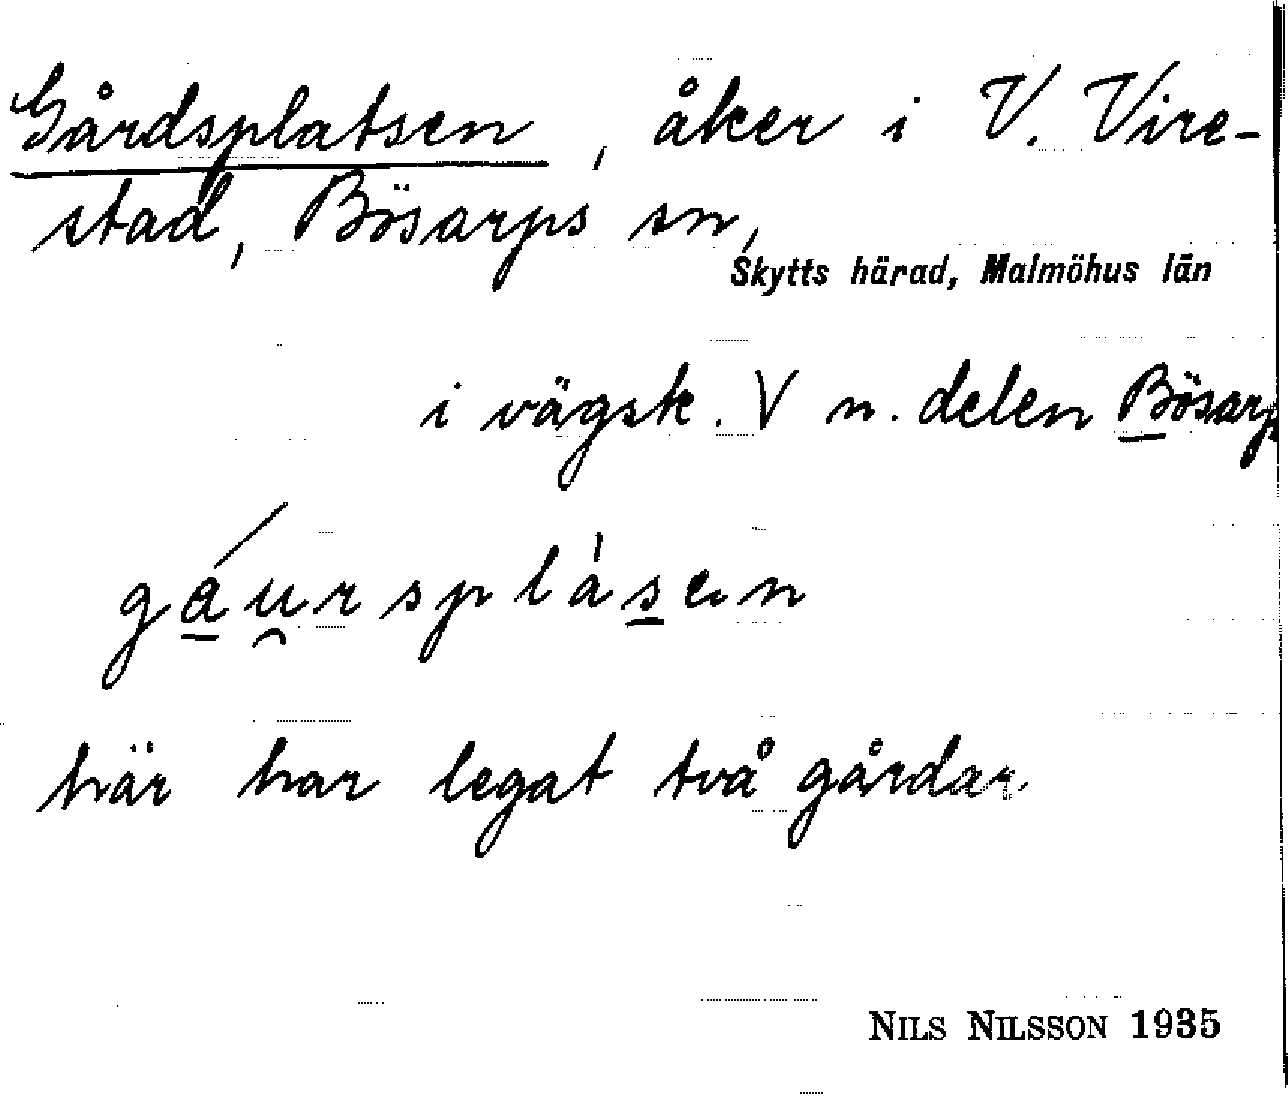 Gårdsplatsen, åker i V. Vire-
stad, Bösarps sn,
Skytts härad, Malmöhus län
i vägsk. V n. delen Bösarp
gáu̯rsplàsen
här har legat två gårdar.
NILS NILSSON 1935